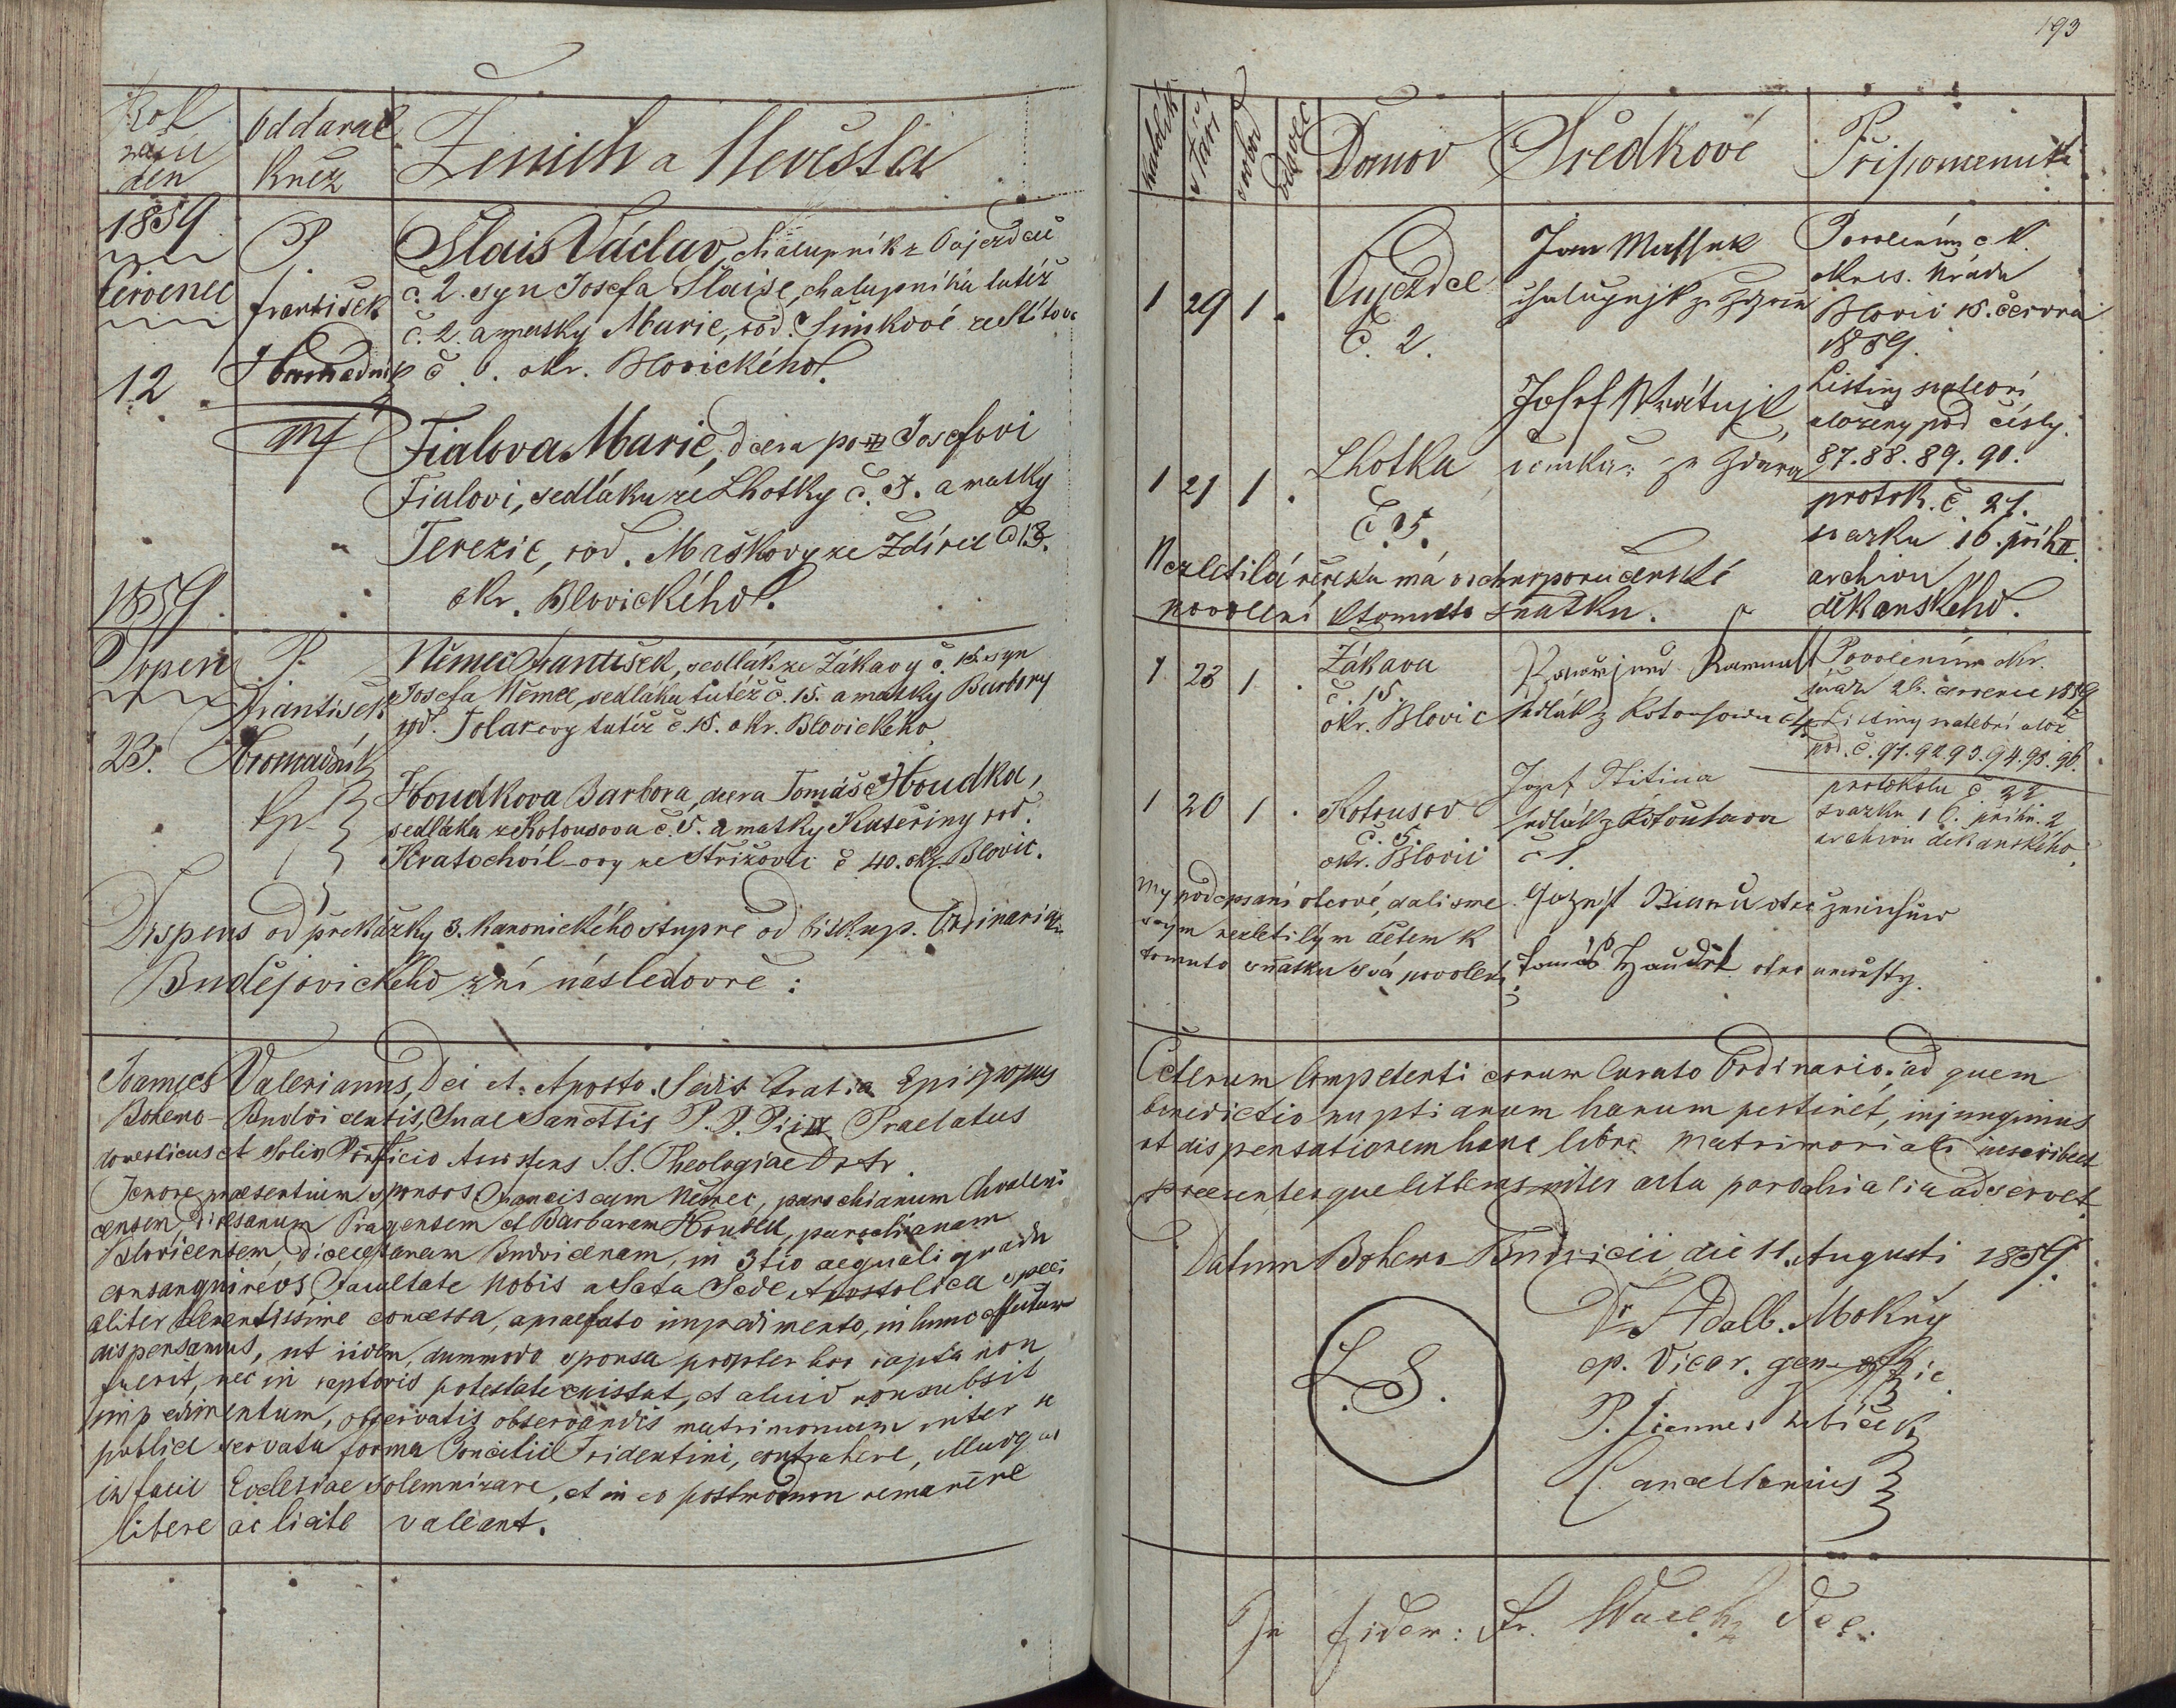 193
Rok
den
Oddaval
Kněz
Ženich a Nevěsta
1859
Červenec
12
P.
František
Hromadník
Slais Václav, chalupník z Oujezdce
č. 2. syn Josefa Slaise, chalupníka tutéž
č. 2. a matky Marie, rod. Šimkové ze Štítova
č . okr. Blovického.
Fialova Marie, dcera po Josefovi
Fialovi, sedláku ze Lhotky č. 5. a matky
Terezie, rod. Maškovy ze Ždírce č 13.
okr. Blovického.
1859
Srpen
23.
P.
František
Hromadník
Kp.
Němec František, sedlák ze Žákavy č. 15. syn
Josefa Němce, sedláka tutéž č. 15. a matky Barbory
rod. Tolarovy tutéž č. 15. okr. Blovického
Houdkova Barbora, dcera Tomáše Houdka,
sedláka z Kotousova č. 5. a matky Kateřiny rod.
Kratochvil-ovy ze Střižovic č 40. okr. Blovic.
Dispens od překážky 3. kanonického stupně od biskup. Ordinariatu
Budějovického zní následovně :
Joannes Valerianus, Dei et Aposto. Sedis Gratia Episcopus
Bohemo-Budvicensis, Suae Sanctitis P. P. Pii IX Praelatus
domesticus et Solio Pontificio Assistens S.S. Theologiae Dr tr.
Tenore praesentium sponsos Franciscum Němec, parochianum Chvaleni
censem, Diecesanum Pragensem et Barbaram Houdek, parochianam
Blovicensem, dioecesanam Budvicenam, in 3tio aequali gradu
consanguineos, Facultate Nobis a Scta Sede Apostolica speci
aliter clementissime concessa, a praefato impedimento, in hunc effectum
dispensamus, ut iidem, dummodo sponsa propter hoc rapta non
fuerit, nec in raptoris potestate existat, et aliud non subsit
impedimentum, observatis observandis matrimonium inter se
publice servata forma Concilii Tridentini, contrahere, illudq
in facie Ecclesiae solemnizare, et in eo postmodum remanere
libere ac licite valeant.
Domov
Svědkové
Připomenutí
1 29 1 .
Oujezdce
č. 2.
Jan Massek
chalupnjk ze
Josef Wrátnjk
Povolením c. k.
okres. úřadu
Blovic 15. června
1859.
Listiny svatební
uloženy pod čísly.
87. 88. 89. 90.
protok. č. 21.
svazku 16. přihr. II
archivu
děkanského.
1 21 1 .
Lhotka
č. 5.
Nezletilá nevěsta má vrchnoporučenské
povolení k tomuto sňatku.
1 23 1 .
Žákava
č. 15.
okr. Blovic
sedlák z Kotousowa
Povolením okr.
úřadu 26. července 1859
Listiny svatební ulož
pod. č. 91. 92. 93. 94. 95. 96.
protokolu č 22
svazku 16. přihr. 2
archivu děkanského.
1 20 1 .
Kotousov
č. 5.
okr. Blovic
Jozef Štitina
sedlák z Kotousova
č 1.
My podepsaní otcové, dali sme
svým nezletilým dětem k
tomuto sňatku svá povolení
otec ženichůw
Tomáš Haudek otec newěsty.
Ceterum Competenti eorum Curato Ordinario, ad quem
benedictio nuptiarum harum pertinet, injungimus
ut dispensationem hanc libro Matrimoniali inscribat
praesentesque litteras inter acta parochialia adservet.
Datum Bohemo Budvicii, die 11. Augusti 1859.
L. S.
Dr Adalb. Mokrý
ep. Vicar. gen.
P. Joannes
Cancellarius
In fidem: Fr. Dec.